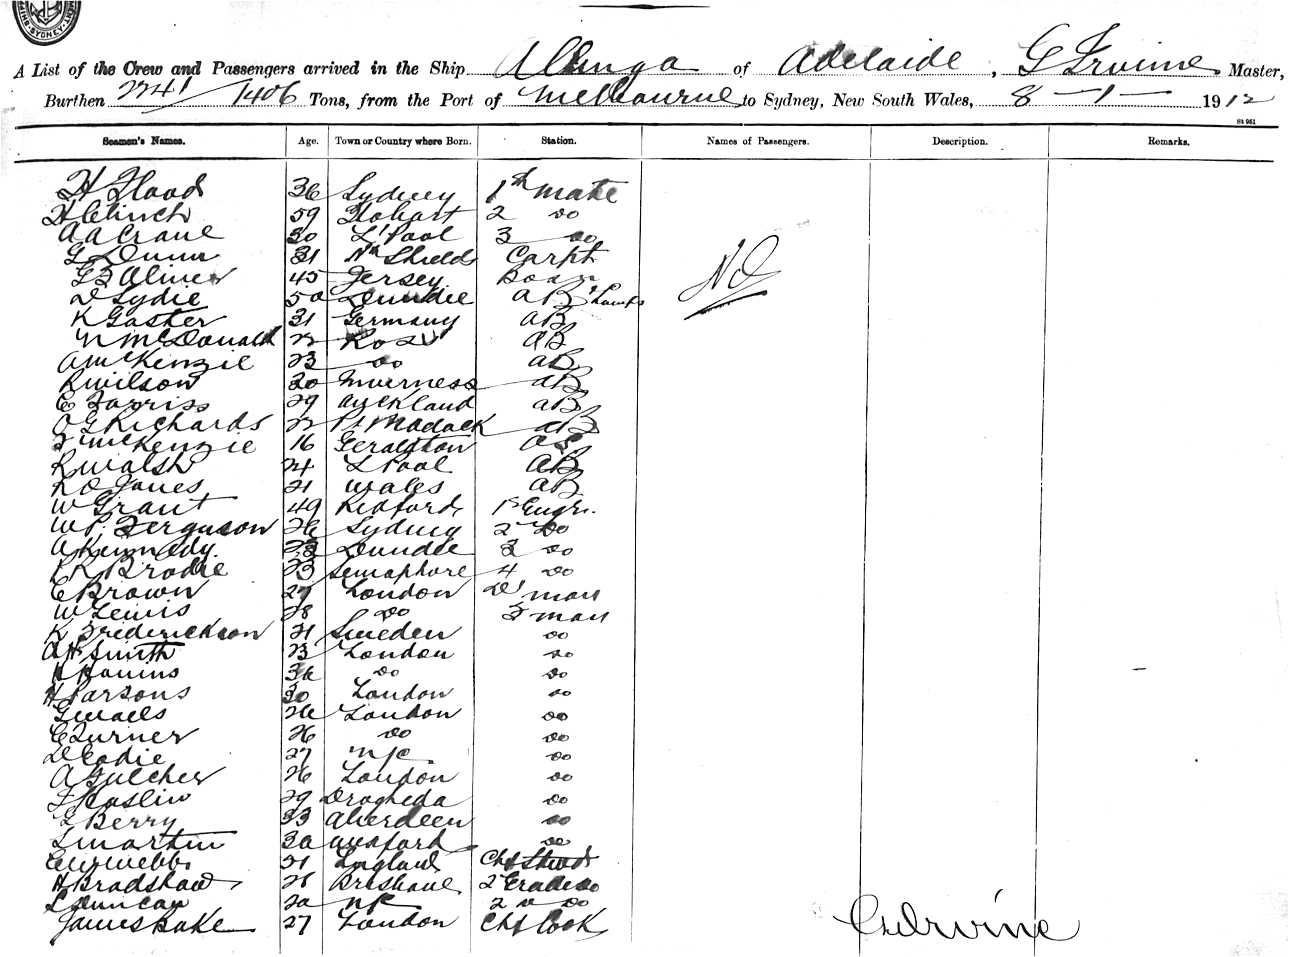 SYDNEY
A List of the Crew and Passengers arrived in the Ship Allinga of Adelaide, G Irvine Master,
Burthen 2241/1406 Tons, from the Port of Melbourne to Sydney, New South Wales, 8-1-1912
St 961
Seamen's Names. Age. Town or Country where Born. Station. Names of Passengers. Description. Remarks.
H Flood 36 Sydney 1st mate
H Clinch 59 Hobart 2 do
A A Crane 30 L'Pool 3 do
G Dunn 31 Nth Shields Carpt
G B Oliver 45 Jersey Bosn
NO
D Lydie 50 Dundee AB & Lamps
K Gaster 31 Germany AB
N McDonald 22 Ross AB
A McKenzie 23 do AB
R Wilson 30 Inverness AB
C Farriss 29 Auckland AB
O G Richards 22 Pt Madock AB
F McKenzie 16 Geraldton OS
R Walsh 24 L Pool AB
R O Jones 21 Wales AB
W Grant 49 1st Engr.
W P. Ferguson 26 Sydney 2 do
A Kennedy. 23 Dundee 3 do
Brodie 23 Semaphore 4 do
C Brown 27 London D' man
W Lewis 28 do F man
K Frederickson 21 Sweden do
A H Smith 23 London do
36 do do
H Parsons 30 London do
G 26 London do
C Turner 26 do do
D Eadie 27 do
A Gulcher 26 London do
F Haslin 29 Drogheda do
G Berry 33 Aberdeen do
S Martin 30 do
Webb 21 England Chf Stwd
H Bradshaw 21 Brisbane 2
L Duncan 20 2 do
James Bake 27 London Chf Cook
G Irvine